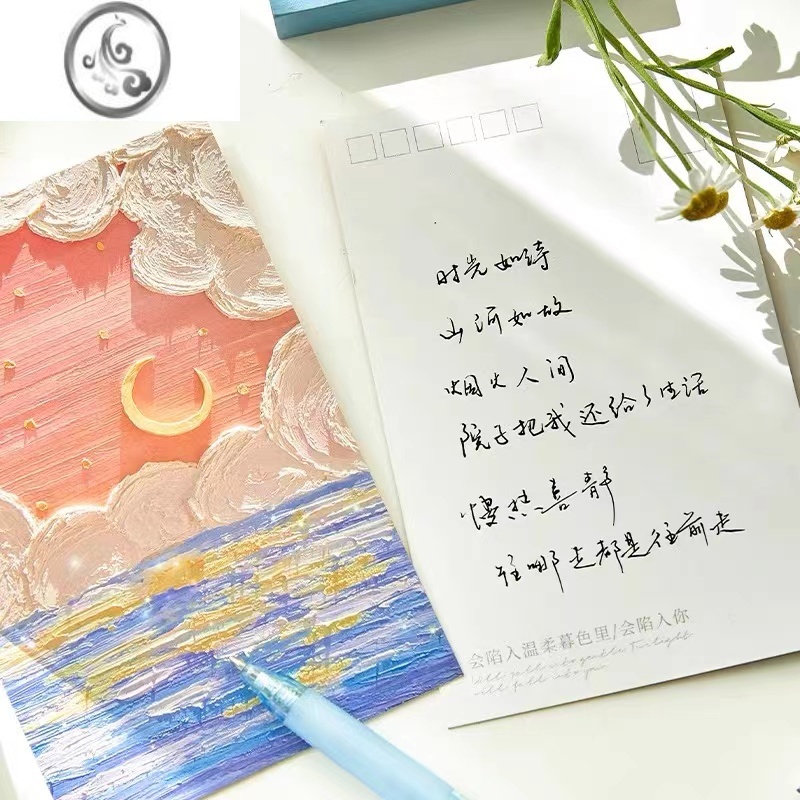 时光如诗
山河如故
烟火人间
院子把我还给了生活
慢热喜静
往哪走都是往前走
会陷入温柔暮色里/会陷入你